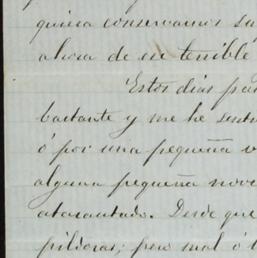 quiera conservarnos su
ahora de su terrible
Estos dias pa
bastante y me he sent
ó por una pequeña
alguna pequeña nove
atarantado. Desde que
pildoras; pero mal ó